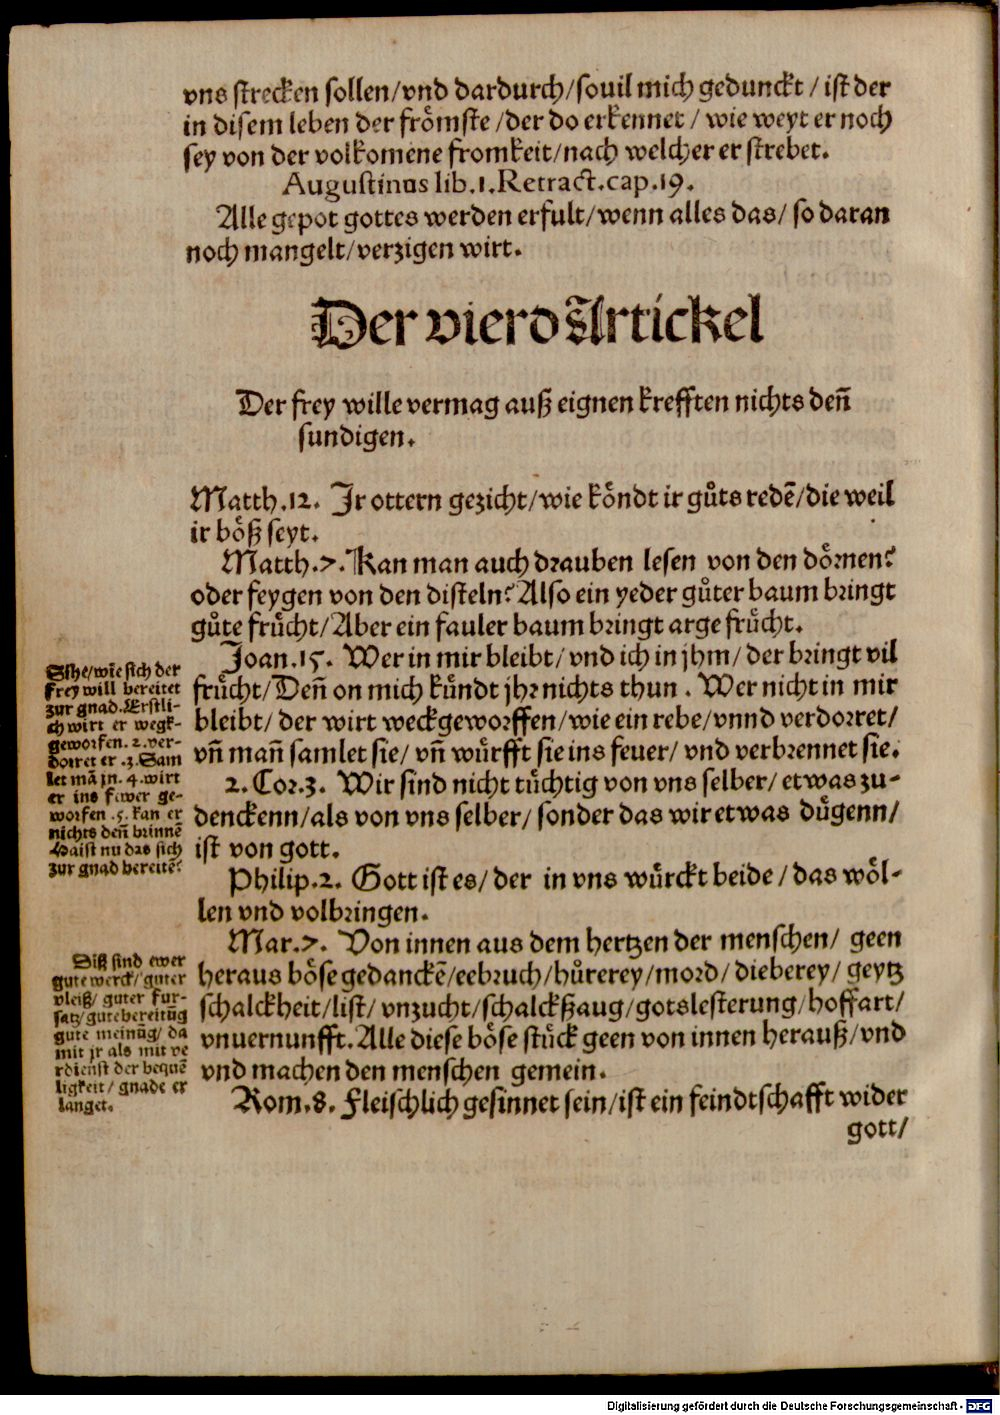 vns strecken sollen/vnd dardurch/souil mich gedunckt / ist der
in disem leben der froͤmste /der do erkennet / wie weyt er noch
sey von der volkomene fromkeit/nach welcher er strebet.
Augustinus lib.1.Retract.cap.19.
Alle gepot gottes werden erfult/wenn alles das/ so daran
noch mangelt/verzigen wirt.
Der vierd Artickel
Der frey wille vermag auß eignen krefften nichts den̄
sundigen.
Matth.12. Jr ottern gezicht/wie koͤndt ir guͦts redē/die weil
ir boͤß seyt.
Matth.7. Kan man auch drauben lesen von den doͤrnen?
oder feygen von den disteln? Also ein yeder guͦter baum bringt
guͦte fruͤcht/Aber ein fauler baum bringt arge fruͤcht.
Joan.15. Wer in mir bleibt/ vnd ich in jhm/ der bringt vil
fruͤcht/Den̄ on mich kuͤndt jhr nichts thun . Wer nicht in mir
bleibt/ der wirt weckgeworffen/wie ein rebe/vnnd verdorret/
vn̄ man̄ samlet sie/ vn̄ wuͤrfft sie ins feuer/ vnd verbrennet sie.
2.Cor.3. Wir sind nicht tuͤchtig von vns selber/ etwas zu-
denckenn/als von vns selber/ sonder das wir etwas duͤgenn/
ist von gott.
Philip.2. Gott ist es/ der in vns wuͤrckt beide/ das woͤl-
len vnd volbringen.
Mar.7. Von innen aus dem hertzen der menschen/ geen
heraus boͤse gedanckē/eebruch/huͦrerey/mord/ dieberey/ geytz
schalckheit/list/ vnzucht/schalckßaug/gotslesterung/hoffart/
vnuernunfft. Alle diese boͤse stuͤck geen von innen herauß/vnd
vnd machen den menschen gemein.
Rom.8. Fleischlich gesinnet sein/ist ein feindtschafft wider
gott/
Sihe/wie sich der
frey will bereitet
zur gnad. Erstli-
ch wirt er wegk-
geworfen. 2. ver-
dorret er .3. Sam
let mā jn. 4. wirt
er ins fewer ge-
worfen .5. kan er
nichts den̄ brinnē
Haist nu das sich
zur gnad bereitē?
Diß sind ewer
gute werck/ guter
vleiß/ guter fur-
satz/ gute bereitūg
gute meinūg/ da
mit jr als mit ve
rdienst der bequē
ligkeit/ gnade er
langet.
Digitalisierung gefördert durch die Deutsche Forschungsgemeinschaft - DFG